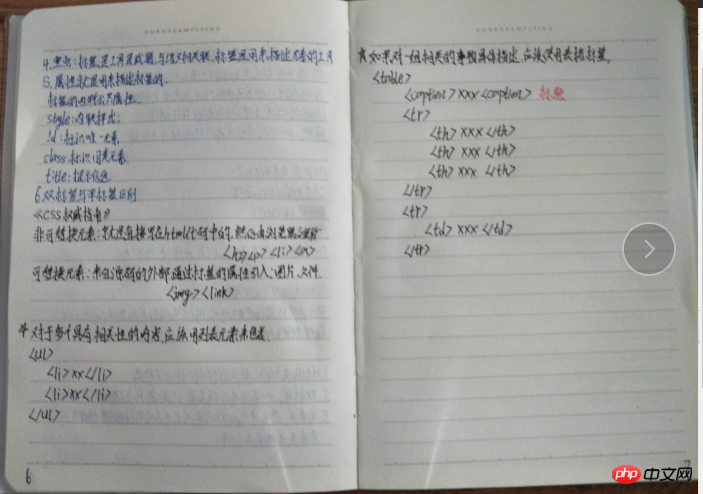 4.重点:标签是工具是武器,与语义相关联,标签是用来描述内容的工具
5.属性就是用来描述标签的.
标签的四对公共属性.
style:内联样式;
id:标识唯一元素
class:标识同类元素
title:提示信息
6.双标签与单标签区别
《CSS权威指南》
非可替换元素:直接写在html代码中的.
<h2><p><li><
可替换元素:来自源码的外部通过标签的属性引入:图片、文件.
<img><link>
对于多个具有相关性的内容,应该用列表元素来包装
<ul>
<li>xx</li>
<li>xx</li>
</ul>
6
如果对一组相关的事物具体描述,应该使用表格标签.
<table>
<caption>xxx<caption> 标题
<tr>
<th>xxx</th>
<th>xxx</th>
<th>xxx</th>
</tr>
<tr>
<td>xxx</td>
</tr>
php中文网